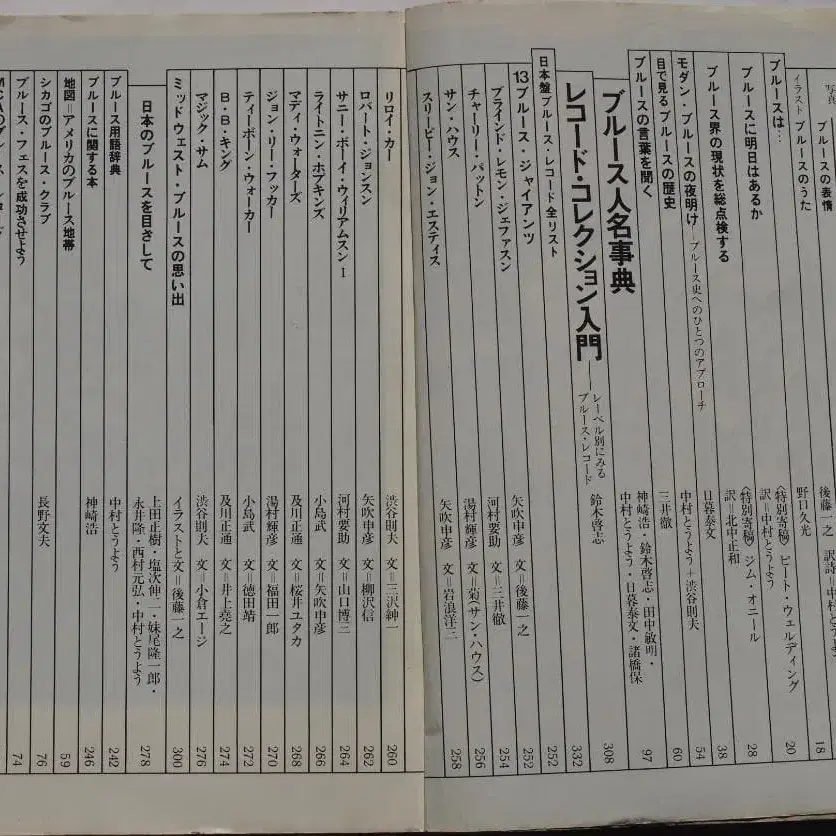 写真 ブルースの表情 後藤一之 訳詩 中村とうよ
イラスト ブルースのうた 野口久光 18
ブルースは… 〈特別寄稿〉ピート・ウェルディング 訳=中村とうよう 20
ブルースに明日はあるか 〈特別寄稿〉ジム・オニール 訳=北中正和 28
ブルース界の現状を総点検する 日暮泰文 38
モダン・ブルースの夜明け―ブルース史へのひとつのアプローチ 中村とうよう+渋谷則夫 54
目で見るブルースの歴史 三井徹 60
ブルースの言葉を聞く 神崎浩・鈴木啓志・田中敏明・中村とうよう・日暮泰文・諸橋保 97
ブルース人名事典 308
レコード・コレクション入門―レーベル別にみるブルース・レコード 鈴木啓志 332
日本盤ブルース・レコード全リスト 252
13ブルース・ジャイアンツ 矢吹申彦 文=後藤一之 252
ブラインド・レモン・ジェファスン 河村要助 文=三井徹 254
チャーリー・パットン 湯村輝彦 文=菊(サン・ハウス) 256
サン・ハウス 矢吹申彦 文=岩浪洋三 258
スリーピー・ジョン・エスティス
リロイ・カー 渋谷則夫 文=三沢紳一 260
ロバート・ジョンスン 矢吹申彦 文=柳沢信 262
サニー・ボーイ・ウィリアムスンI 河村要助 文=山口博三 264
ライトニン・ホプキンズ 小島武 文=矢吹申彦 266
マディ・ウォーターズ 及川正通 文=桜井ユタカ 268
ジョン・リー・フッカー 湯村輝彦 文=福田一郎 270
ティーボーン・ウォーカー 小島武 文=徳田靖 272
B・B・キング 及川正通 文=井上堯之 274
マジック・サム 渋谷則夫 文=小倉エージ 276
ミッドウェスト・ブルースの思い出 イラストと文=後藤一之 300
日本のブルースを目ざして 上田正樹・塩次伸二・妹尾隆一郎・永井隆・西村元弘・中村とうよう 278
ブルース用語辞典 中村とうよう 242
ブルースに関する本 神崎浩 246
地図=アメリカのブルース地帯 59
シカゴのブルース・クラブ 長野文夫 76
ブルース・フェスを成功させよう 74